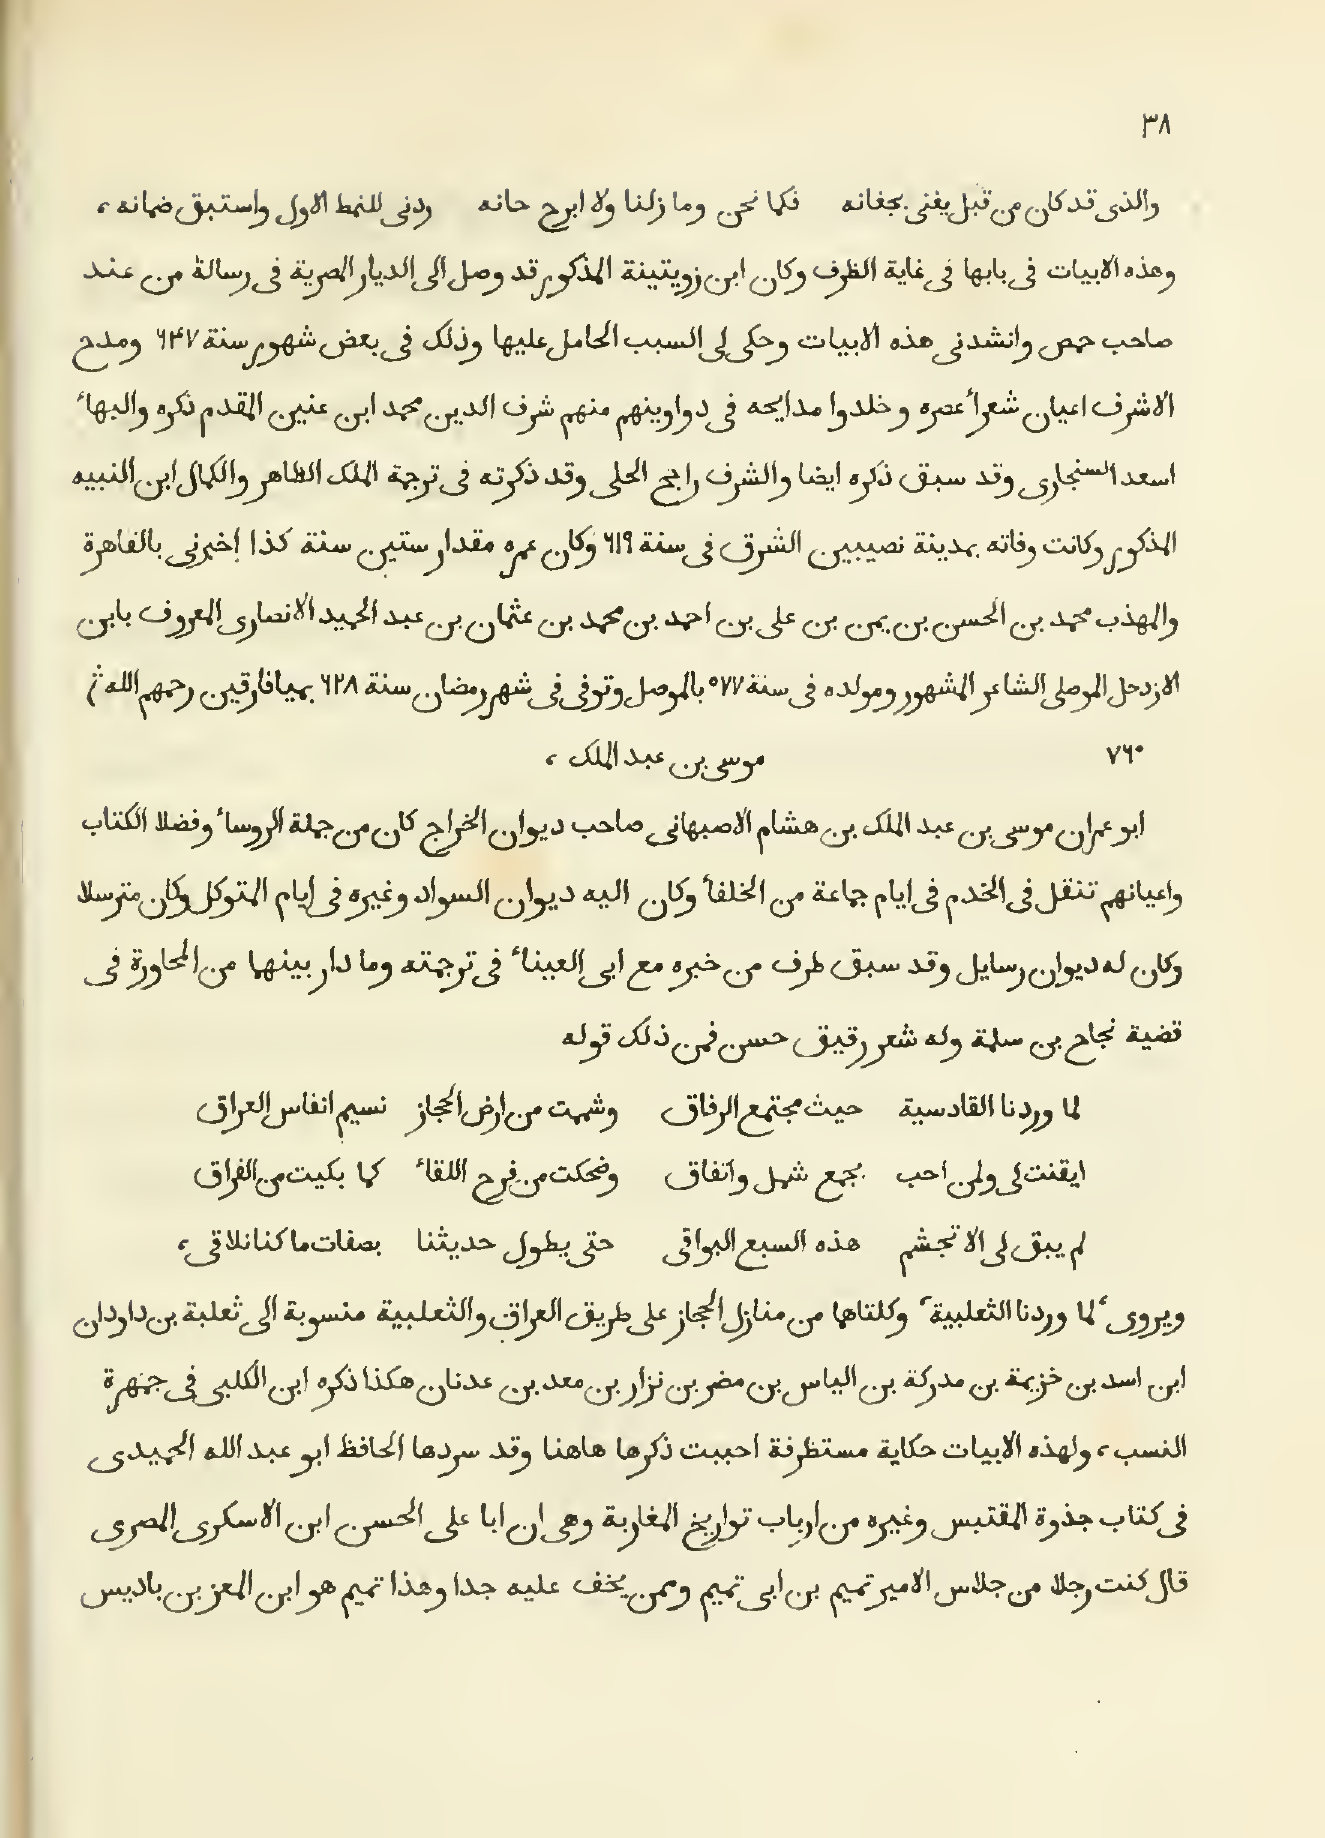 ٣٨
والذى قد كان من قبل يغنى بجغانه فكما نحن وما زلنا ولا ابرح حانه ردنى للنمط الاول واستبق ضمانه ،
وهذه الابيات فى بابها فى غاية الظرف وكان ابن زويتينة المذكور قد وصل الى الديار المصرية فى رسالة من عند
صاحب حمص وانشدنى هذه الابيات وحكى لى السبب الحامل عليها وذلك فى بعض شهور سنة ٦٤٧ ومدح
الاشرف اعيان شعرأ عصره وخلدوا مدايحه فى دواوينهم منهم شرف الدين محمد ابن عنين المقدم ذكره والبهاٴ
اسعد السنجارى وقد سبق ذكره ايضا والشرف راجح الحلى وقد ذكرته فى ترجمة الملك الظاهر والكمال ابن النبيه
المذكور وكانت وفاته بمدينة نصيبين الشرق فى سنة ٦١٩ وكان عمره مقدار ستين سنة كذا اخبرنى بالقاهرة
والمهذب محمد بن الحسن بن يمن بن على بن احمد بن محمد بن عثمان بن عبد الحميد الانصارى المعروف بابن
الازدحل الموصلى الشاعر المشهور ومولده فى سنة ٥٧٧ بالموصل وتوفى فى شهر رمضان سنة ٦٢٨ بميافارقين رحمهم الله
٧٦٠ موسى بن عبد الملك ،
ابو عمران موسى بن عبد الملك بن هشام الاصبهانى صاحب ديوان الخراج كان من جملة الروساٴ وفضلا الكتاب
واعيانهم تنقل فى الخدم فى ايام جماعة من الخلفأ وكان اليه ديوان السواد وغيره فى ايام المتوكل وكان مترسلا
وكان له ديوان رسايل وقد سبق طرف من خبره مع ابى العيناٴ فى ترجمته وما دار بينهما من المحاورة فى
قضية نجاح بن سلمة وله شعر رقيق حسن فمن ذلك قوله
لما وردنا القادسية حيث مجتمع الرفاق وشممت من ارض الحجاز نسيم انفاس العراق
ايقنت لى ولمن احب بجمع شمل واتفاق وضحكت من فرح اللقاٴ كما بكيت من الفراق
لم يبق لى الا تجشم هذه السبع البواقى حتى يطول حديثنا بصفات ما كنا نلاقى ،
ويروى ، لما وردنا الثعلبية ، وكلتاها من منازل الحجاز على طريق العراق والثعلبية منسوبة الى ثعلبة بن داودان
ابن اسد بن خزيمة بن مدركة بن الياس بن مضر بن نزار بن معد بن عدنان هكذا ذكره ابن الكلبى فى جمهرة
النسب ، ولهذه الابيات حكاية مستظرفة احببت ذكرها هاهنا وقد سردها الحافظ ابو عبد الله الحميدى
فى كتاب جذوة المقتبس وغيره من ارباب تواريخ المغاربة وهى ان ابا على الحسن ابن الاسكرى المصرى
قال كنت رجلا من جلاس الامير تميم بن ابى تميم وممن يخف عليه جدا وهذا تميم هو ابن المعز بن باديس